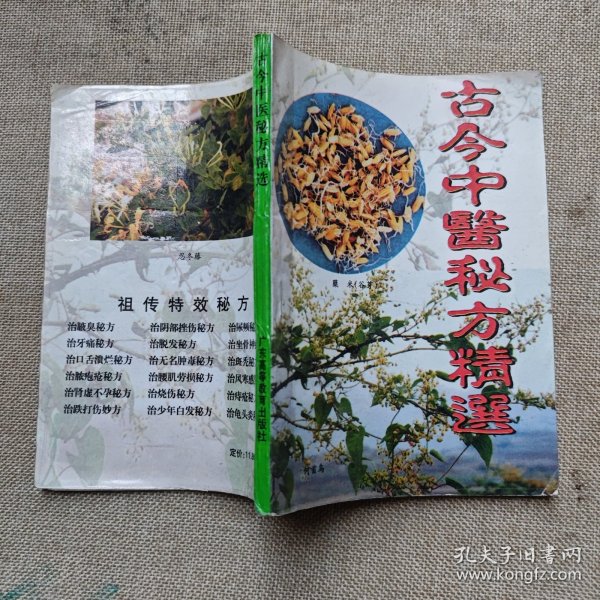 古今中醫秘方精選
米(谷芽)
何首乌
古今中医秘方精选
高等教育出版社
忍冬藤
祖传特效秘方
治腋臭秘方 治阴部挫伤秘方
治牙痛秘方 治脱发秘方
治口舌溃烂秘方 治无名肿毒秘方
治脓疱疮秘方 治腰肌劳损秘方
治肾虚不孕秘方 治烧伤秘方
治跌打伤妙方 治少年白发秘方
定价:11
孔夫子旧书网
www.kongfz.com